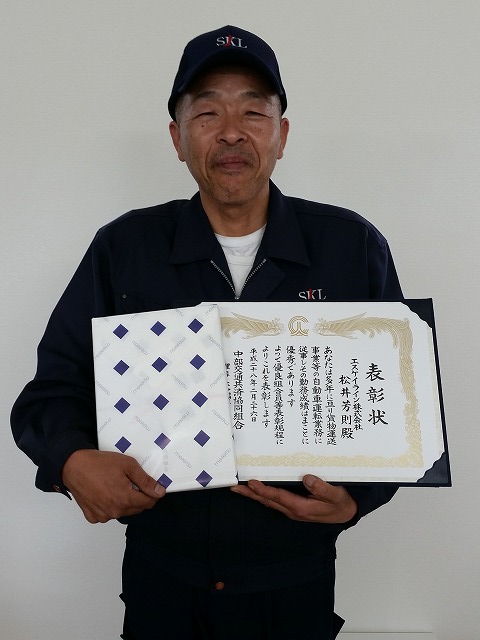 SKL
SKL
表彰状
エスケイライン株式会社
松井芳則殿
あなたは多年に亘り貨物運送
事業等の自動車運転業務に
従事しその勤務成績はまことに
優秀であります
よって優良組合員等表彰規程に
よりこれを表彰します
平成二十八年二月二十六日
中部交通共済協同組合